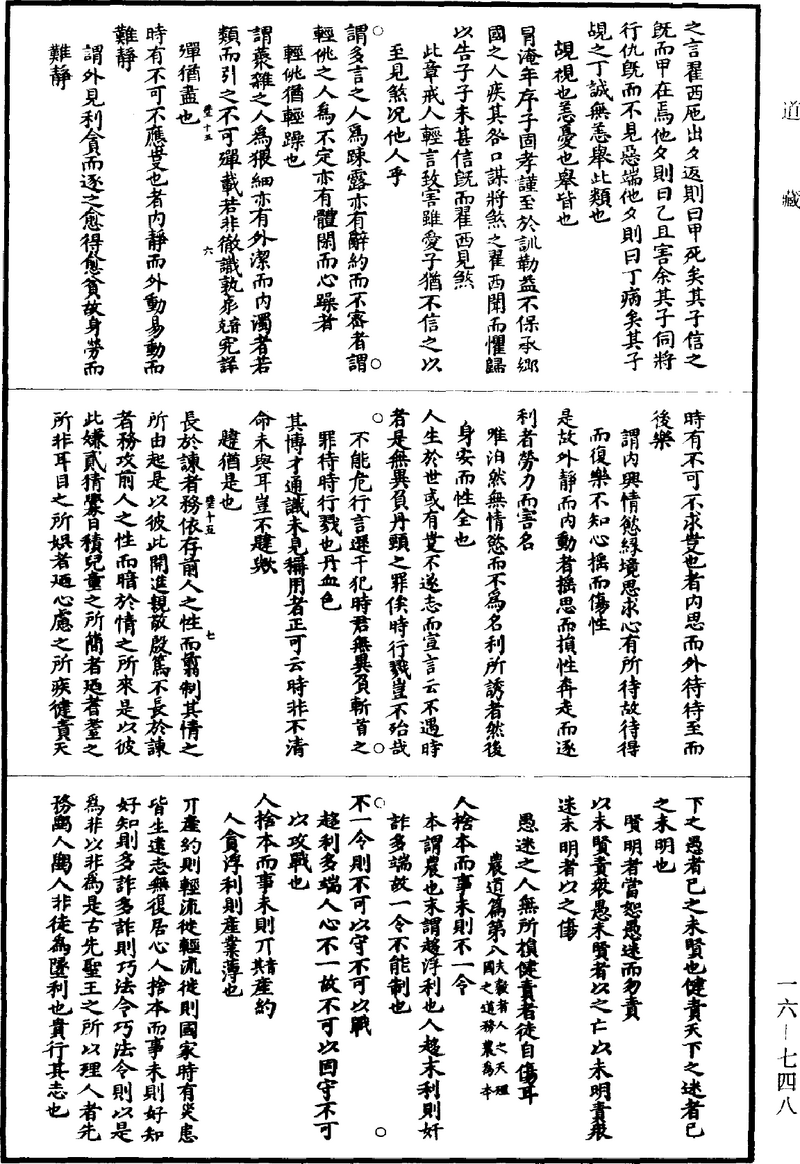 道藏
之言翟西厄出夕返則曰甲死矣其子信之
旣而甲在焉他夕則曰乙且害余其子伺將
行仇旣而不見惡端他夕則曰丁病矣其子
覘之丁誠無恙舉此類也
覘視也恙憂也舉皆也
冐淹年序子固孝謹至於訓勒益不保承鄉
國之人疾其咎口謀將煞之翟西聞而懼歸
以告子子未甚信旣而翟西見煞
此章戒人輕言致害雖愛子猶不信之以
至見煞況他人乎
謂多言之人爲踈露亦有辭約而不密者謂
輕佻之人爲不定亦有體閑而心躁者
輕佻猶輕躁也
謂蘽雜之人爲猥細亦有外潔而内濁者若
類而引之不可殫載若非徹識孰
殫猶盡也
時有不可不應㞮也者内靜而外動易動而
難靜
謂外見利貪而逐之愈得愈貧故身勞而
難靜
時有不可不求㞮也者内思而外待待至而
後樂
謂内興情慾緣境思求心有所待故待得
而復樂不知心揺而傷性
是故外靜而内動者揺思而損性奔走而逐
利者勞力而害名
唯泊然無情慾而不爲名利所誘者然後
身安而性全也
人生於世或有㞮不遂志而宣言云不遇時
者是無異負丹頸之罪俟時行戮豈不殆哉
不能危行言遜干犯時君無異負斬首之
罪待時行戮也丹血色
其博才通識未見稱用者正可云時非不清
命未與耳豈不韙歟
韙猶是也
長於諫者務依存前人之性而翦制其情之
所由起是以彼此開進親敬啟篤不長於諫
者務攻前人之性而暗於情之所來是以彼
此嫌貳猜釁日積兒童之所簡者迺者耋之
所非耳目之所娛者迺心慮之所疾健責天
下之愚者已之未賢也健責天下之迷者已
之未明也
賢明者當恕愚迷而多責
以未賢責衆愚未賢者以之亡以未明責衆
迷未明者以之傷
愚迷之人無所損健責者徒自傷耳
農道篇第八夫穀者人之天理國之道務農爲本
人捨本而事末則不一令
本謂農也末謂趍浮利也人趍末利則奸
詐多端故一令不能制也
不一令則不可以守不可以戰
趍利多端人心不一故不可以固守不可
以攻戰也
人捨本而事末則丌㡯產約
人貪浮利則產業薄也
丌產約則輕流徙輕流徙則國家時有災患
皆生遠志無復居心人捨本而事末則好知
好知則多詐多詐則巧法令巧法令則以是
爲非以非爲是古先聖王之所以理人者先
務農人農人非徒爲墜利也貴行其志也
一六-七四八